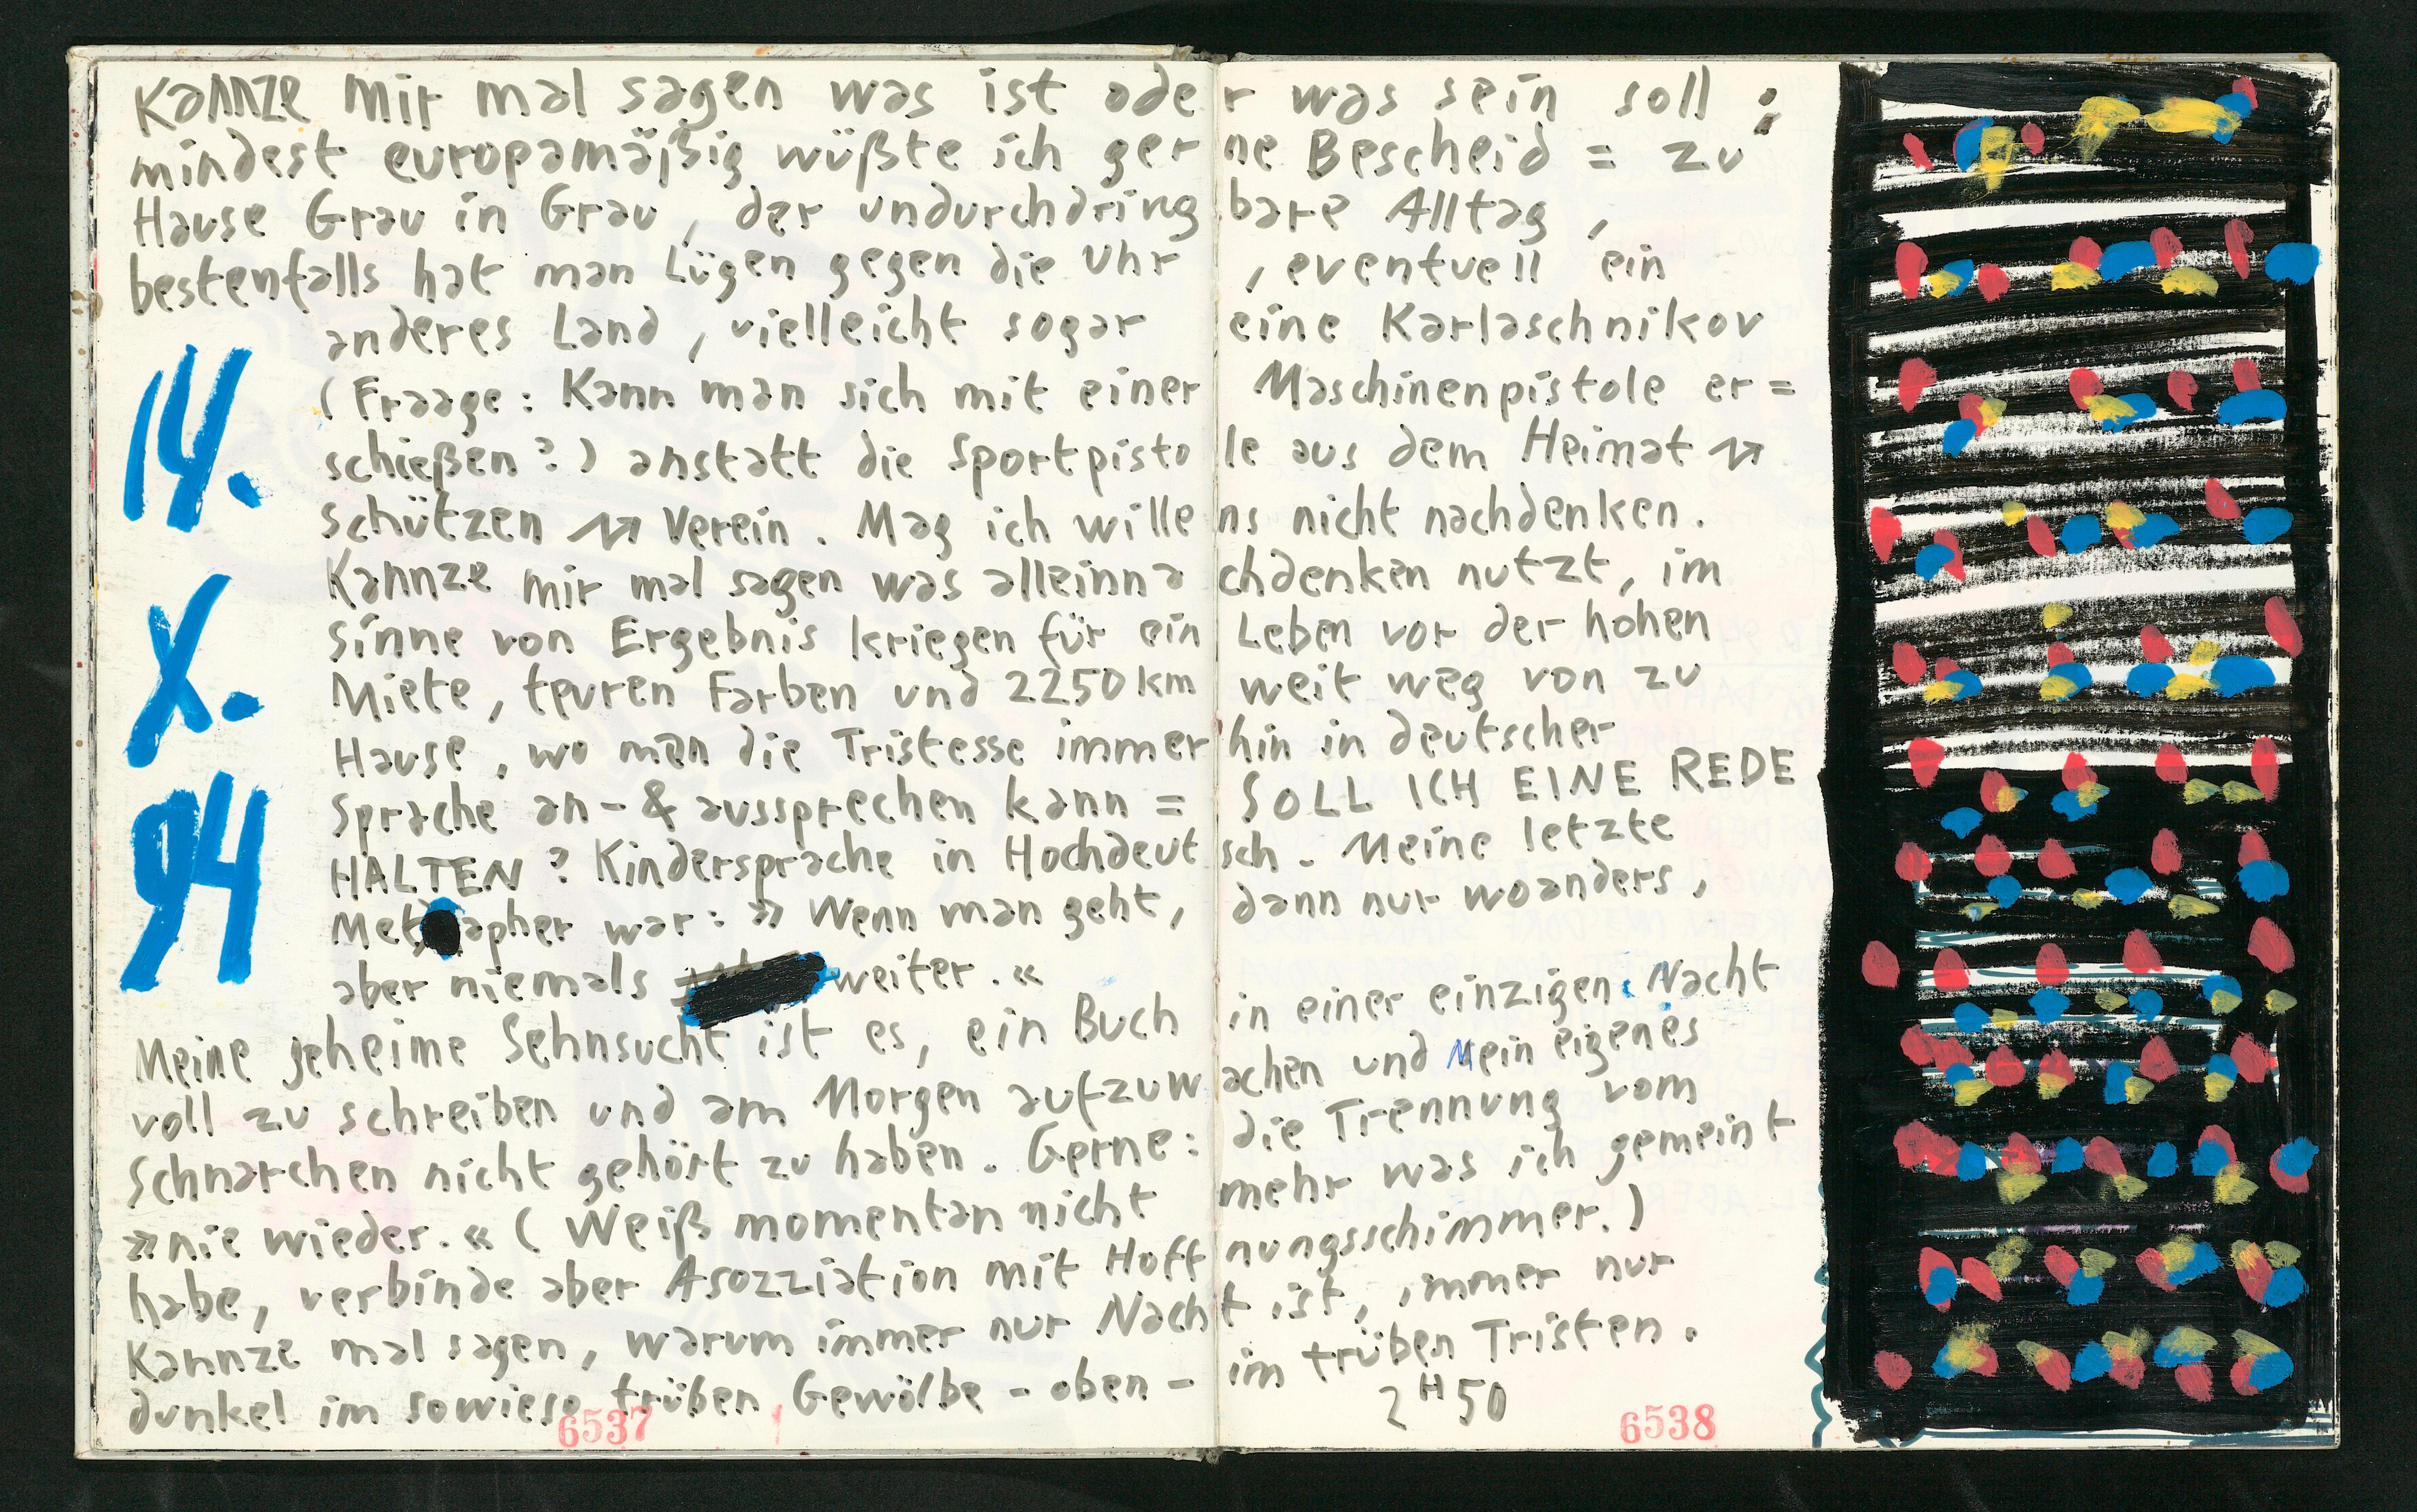 Kannze mir mal sagen was ist oder was sein soll :
mindest europamäßig wüßte ich gerne Bescheid = zu
Hause Grau in Grau, der undurchdringbare Alltag,
bestenfalls hat man Lügen gegen die Uhr, eventuell ein
anderes Land, vielleicht sogar eine Karlaschnikov
(Fraage: Kann man sich mit einer Maschinenpistole er=
schießen?) anstatt die Sportpistole aus dem Heimat
Schützen Verein. Mag ich willens nicht nachdenken.
Kannze mir mal sagen was alleinnachdenken nutzt, im
Sinne von Ergebnis kriegen für ein Leben vor der hohen
Miete, teuren Farben und 2250 km weit weg von zu
Hause, wo man die Tristesse immerhin in deutscher
Sprache an- & aussprechen kann = SOLL ICH EINE REDE
HALTEN? Kindersprache in Hochdeutsch. Meine letzte
Metapher war: » Wenn man geht, dann nur woanders,
aber niemals weiter.«
Meine geheime Sehnsucht ist es, ein Buch in einer einzigen Nacht
voll zu schreiben und am Morgen aufzuwachen und Mein eigenes
Schnarchen nicht gehört zu haben. Gerne: die Trennung vom
»nie wieder.« (Weiß momentan nicht mehr was ich gemeint
habe, verbinde aber Asozziation mit Hoffnungsschimmer.)
Kannze mal sagen, warum immer nur Nacht ist, immer nur
dunkel im sowieso trüben Gewölbe - oben - im trüben Tristen.
2H50
14.
X.
94
6537
6538